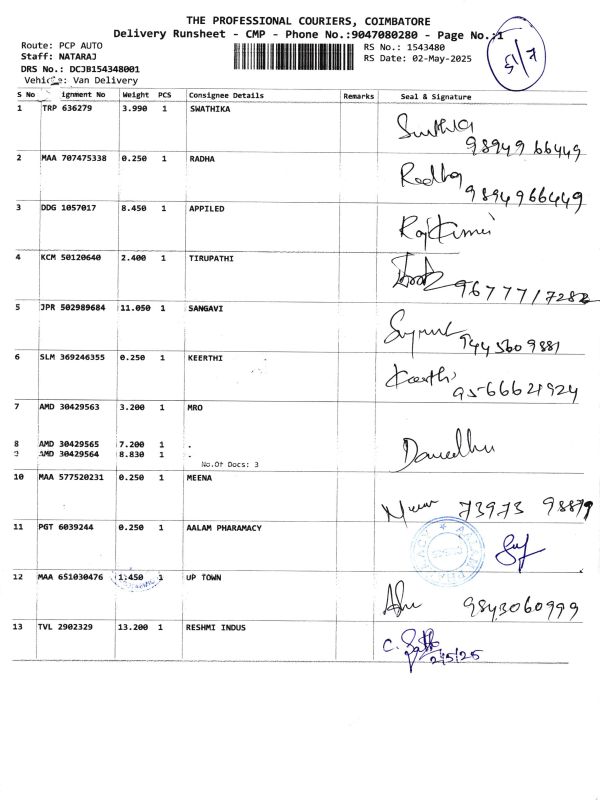 THE PROFESSIONAL COURIERS, COIMBATORE
Delivery Runsheet - CMP - Phone No.:9047080280 - Page No.:1
Route: PCP AUTO
Staff: NATARAJ
DRS No.: DCJB154348001
Vehicle: Van Delivery
RS No.: 1543480
RS Date: 02-May-2025
S No ignment No Weight PCS Consignee Details Remarks Seal & Signature
1 TRP 636279 3.990 1 SWATHIKA
98949 66449
2 MAA 707475338 0.250 1 RADHA
Radha
9894966449
3 DDG 1057017 8.450 1 APPILED
4 KCM 50120640 2.400 1 TIRUPATHI
5 JPR 502989684 11.050 1 SANGAVI
9445609881
6 SLM 369246355 0.250 1 KEERTHI
Keerthi
9566621924
7 AMD 30429563 3.200 1 MRO
8 AMD 30429565 7.200 1 .
9 AMD 30429564 8.830 1 .
No.Of Docs: 3
10 MAA 577520231 0.250 1 MEENA
73973 98879
11 PGT 6039244 0.250 1 AALAM PHARAMACY
12 MAA 651030476 1.450 1 UP TOWN
9843060999
13 TVL 2902329 13.200 1 RESHMI INDUS
2/5/25